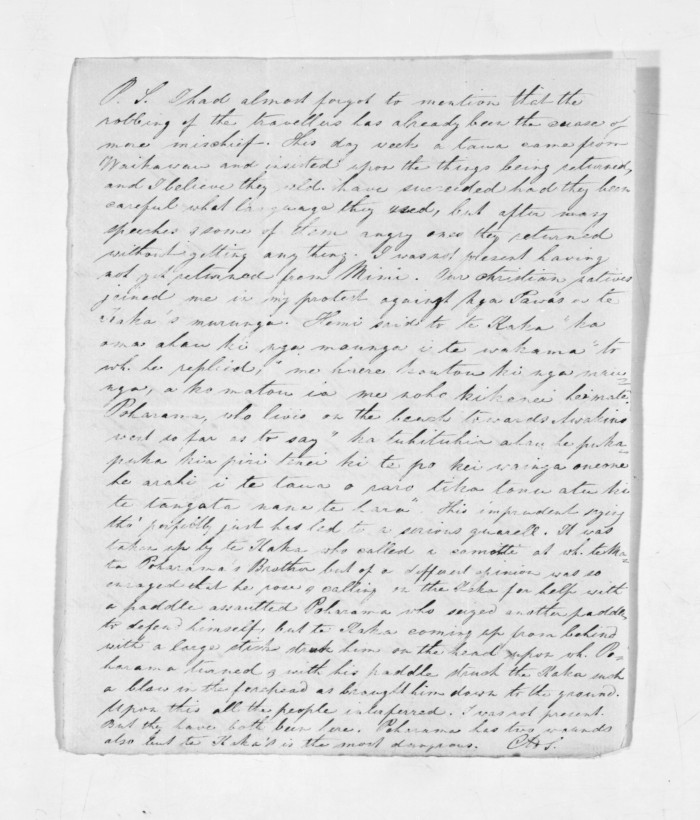 P. S. I had almost forgot to mention that the
robbing of the travellers has already been the cause of
more mischief. This day week a taua came from
Waikawau and insisted upon the things being returned,
and I believe they wld. have succeeded had they been
careful what language they used, but after many
speeches & some of them angry ones they returned
without getting any thing. I was not present having
not yet returned from Mimi. Our Christian natives
joined me in my protest against Nga Tawas & te
Kaka's murunga. Hemi said to te Kaka "ka
oma ahau ki nga maunga i te wakama" to
wh. he replied, "me haere koutou ki nga mau-
nga, a ko matou ia me noho kikonei he mate.
Poharama, who lives on the beach towards Awakino
went so far as to say "ka tuhituhia ahau he puka-
puka kia piri ki te po kei wainga oneone
he arahi i te taua o raro tika tonu atu ki
te tangata nana te hara". His imprudent saying
tho' perfectly just has led to a serious quarell. It was
taken up by te Kaka who called a comitte at wh.
Poharama's Brother but of a different opinion was so
enraged that he rose & calling on the Kaka for help with
a paddle assaulted Poharama who seized another paddle
to defend himself, but te Kaka coming up from behind
with a large stick struk him on the head upon wh. Po-
harama turned & with his paddle struck the Kaka such
a blow in the forehead as brought him down to the ground.
Upon this all the people interferred. I was not present.
But they have both been here. Poharama has two wounds
also but te Kaka's is the most dangerous. CHS.